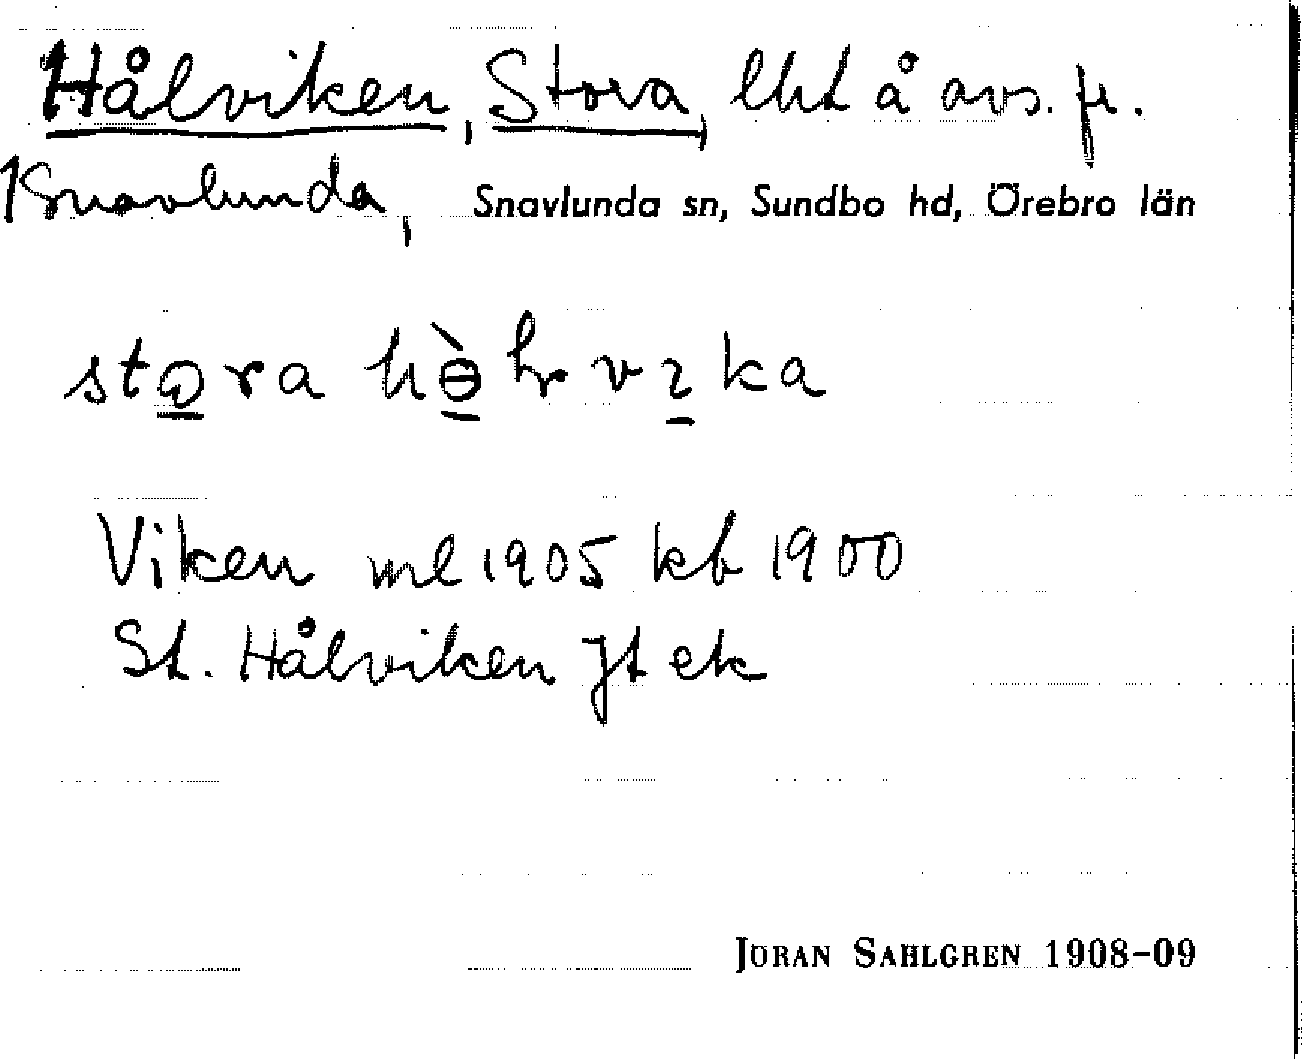 Hålviken, Stora, lht å avs. fr.
1 Snavlunda, Snavlunda sn, Sundbo hd, Örebro län
Viken ml 1905 kb 1900
St. Hålviken Jt ek
JÖRAN SAHLGREN 1908–09